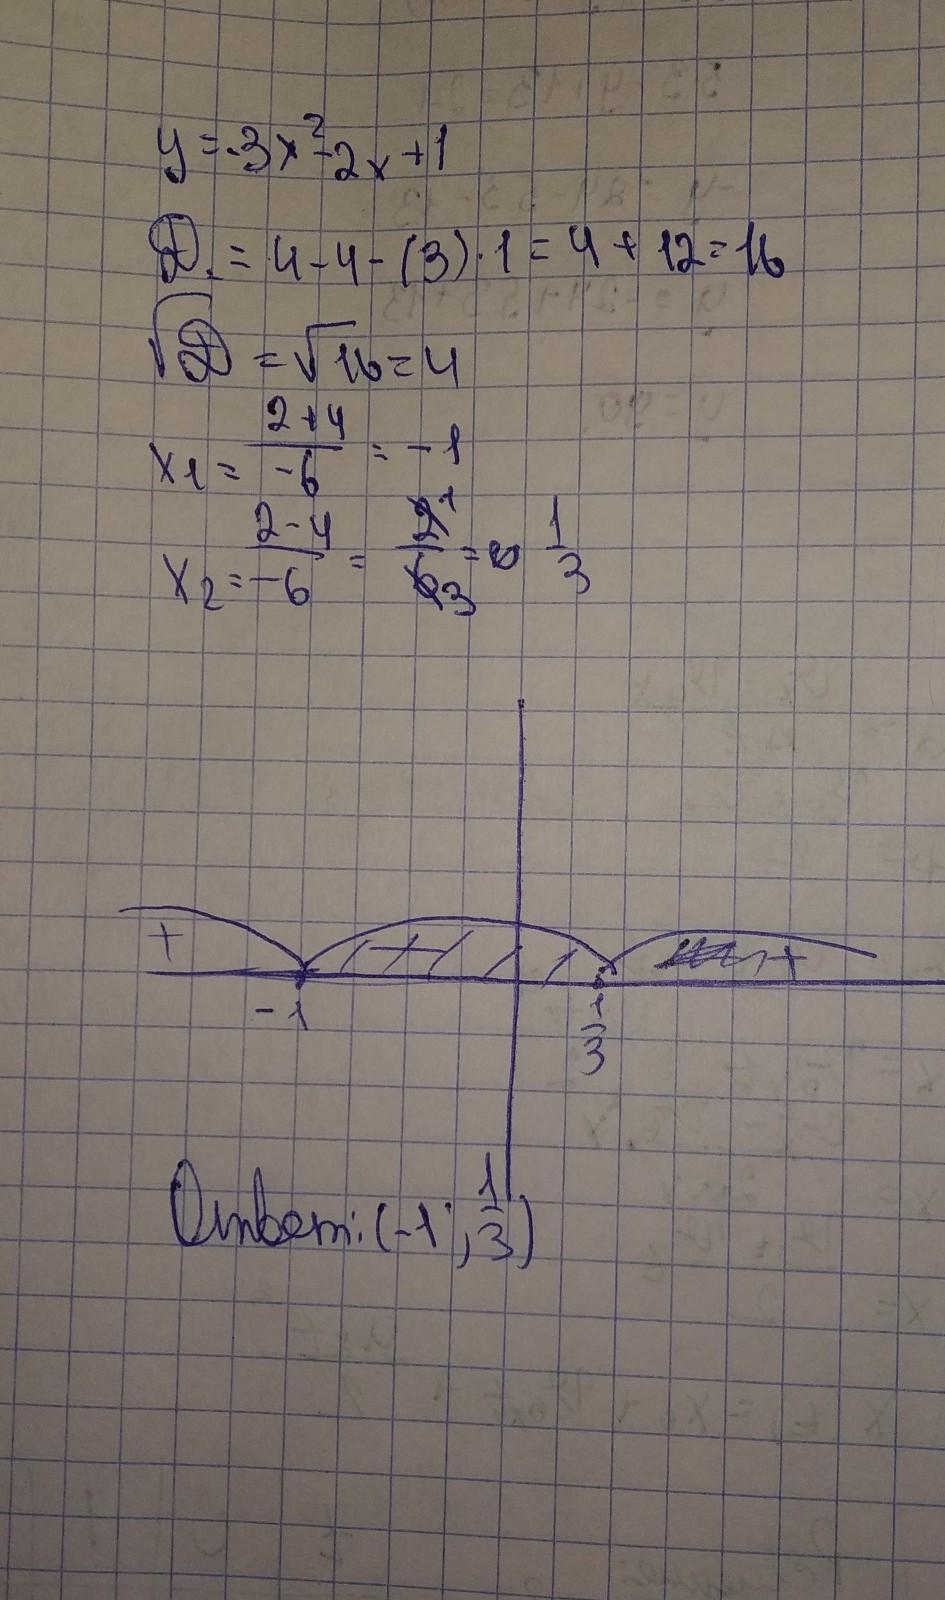 y = -3x² - 2x + 1
D = 4 - 4 - (3) · 1 = 4 + 12 = 16
√D = √16 = 4
x1 = (2+4)/(-6) = -1
x2 = (2-4)/(-6) = 2 1/6 3 = 1/3
+ + +
-1 1/3
Ответ: (-1; 1/3)